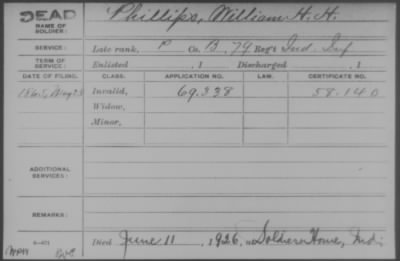 DEAD
NAME OF SOLDIER: Phillips, William H. H.
SERVICE: Late rank, P Co. B, 79 Reg't Ind. Inf
TERM OF SERVICE: Enlisted , 1 Discharged , 1
DATE OF FILING. CLASS. APPLICATION NO. LAW. CERTIFICATE NO.
1865, May 23 Invalid, 69.338 58.140
Widow,
Minor,
ADDITIONAL SERVICES:
REMARKS:
Died June 11, 1926, at Soldiers Home, Ind.